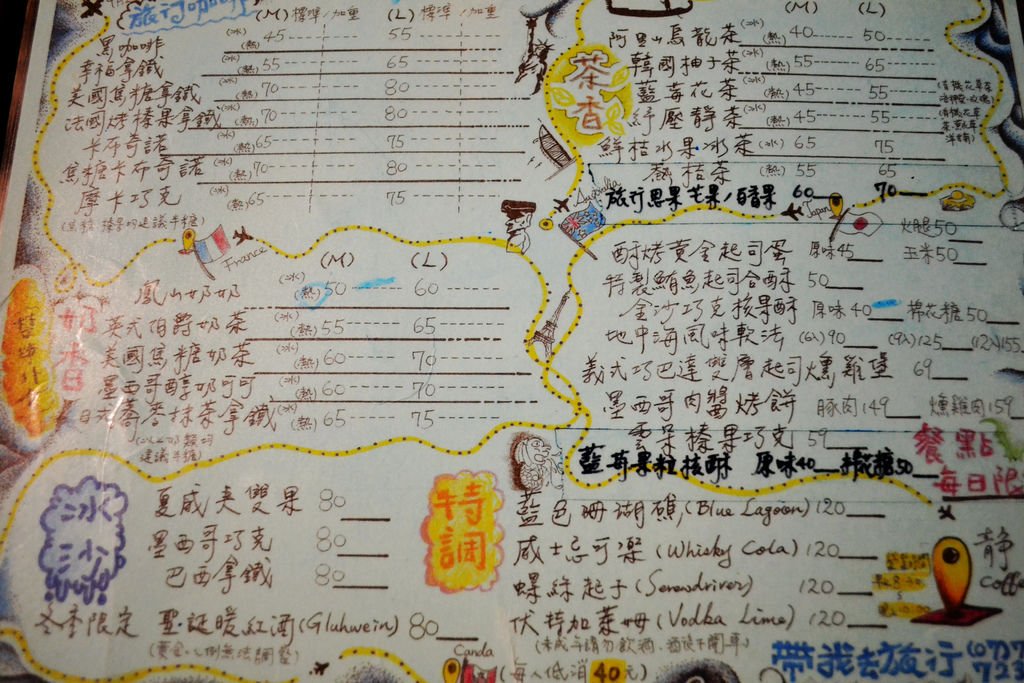 旅行咖啡 (M) 標準/加重 (L) 標準/加重
黑咖啡 (冰)(熱) 45 55
幸福拿鐵 (冰)(熱) 55 65
美國焦糖拿鐵 (冰)(熱) 70 80
法國烤榛果拿鐵 (冰)(熱) 70 80
卡布奇諾 (冰)(熱) 65 75
焦糖卡布奇諾 (冰)(熱) 70 80
摩卡巧克 (冰)(熱) 65 75
(焦糖、榛果均建議半糖)
France
奶香
(M) (L)
鳳山奶奶 (冰)(熱) 50 60
英式伯爵奶茶 (冰)(熱) 55 65
美國焦糖奶茶 (冰)(熱) 60 70
墨西哥醇奶可可 (冰)(熱) 60 70
日式蕎麥抹茶拿鐵 (冰)(熱) 65 75
建議半糖)
冰沙
夏威夷雙果 80
墨西哥巧克 80
巴西拿鐵 80
冬季限定 聖誕暖紅酒 (Gluhwein) 80
茶香
(M) (L)
阿里山烏龍茶 (冰)(熱) 40 50
韓國柚子茶 (冰)(熱) 55 65
藍莓花茶 (冰)(熱) 45 55
紓壓靜茶 (冰)(熱) 45 55
鮮桔水果冰茶 (M) 65 75
熱桔茶 (M) 55 65
旅行思果 芒果/百香果 60 70
Australia
Japan
酥烤黃金起司蛋 原味45 火腿50 玉米50
特製鮪魚起司合酥 50
金沙巧克核果酥 原味40 棉花糖50
地中海風味軟法 (6入)90 (9入)125 (12入)155
義式巧巴達雙層起司燻雞堡 69
墨西哥肉醬烤餅 豚肉149 燻雞肉159
雲朵榛果巧克 59
藍莓果粒核酥 原味40 棉花糖50
餐點
每日限
特調
藍色珊瑚礁 (Blue Lagoon) 120
威士忌可樂 (Whisky Cola) 120
螺絲起子 (Serewdriver) 120
伏特加萊姆 (Vodka Lime) 120
(未成年請勿飲酒、酒後不開車)
Canda
(每人低消40元)
靜
Coffe
帶我去旅行 (07)7
723